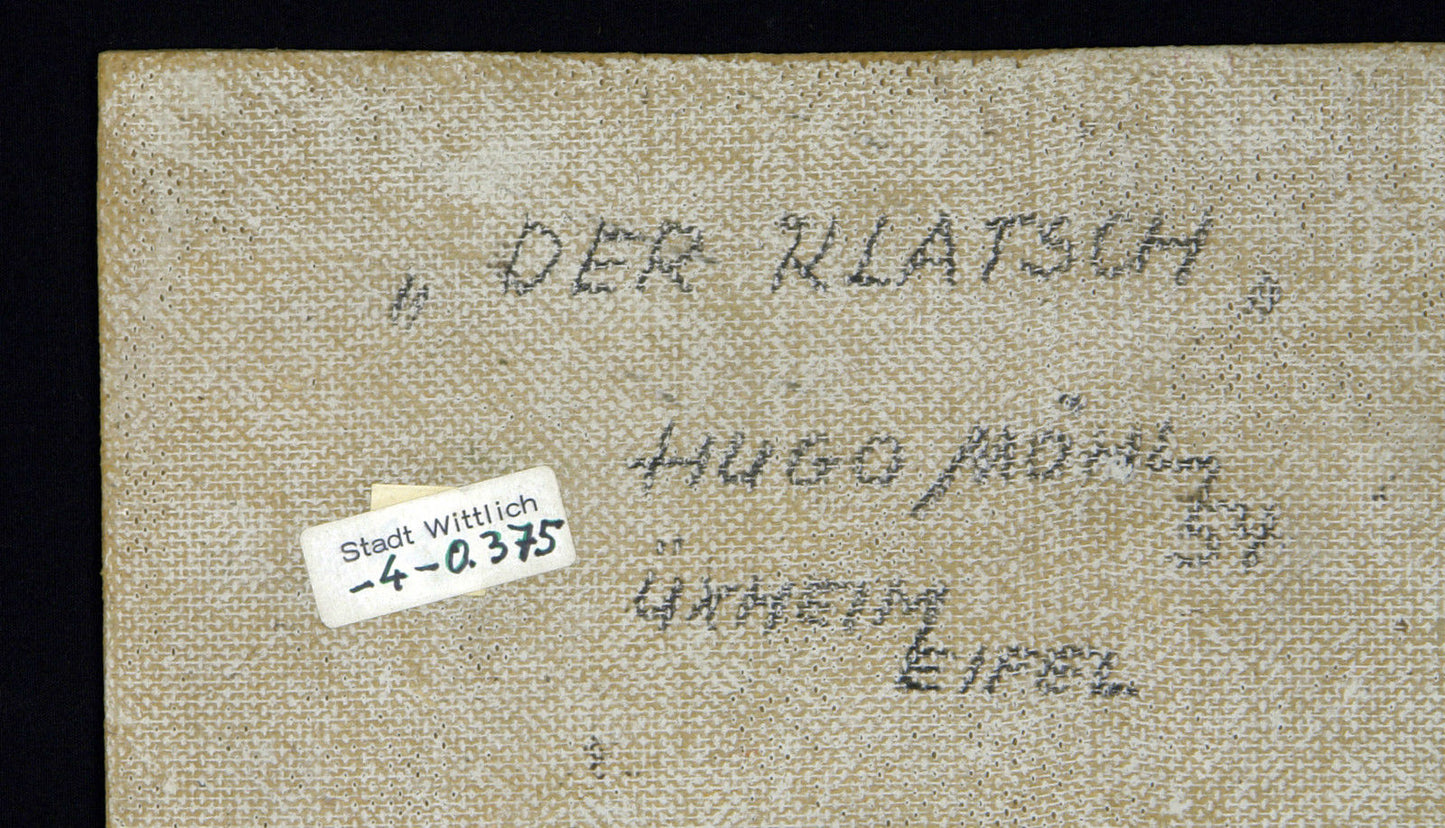 „ DER KLATSCH "
HUGO MÖHL
59
ÜXHEIM
EIFEL
Stadt Wittlich
-4-0.375